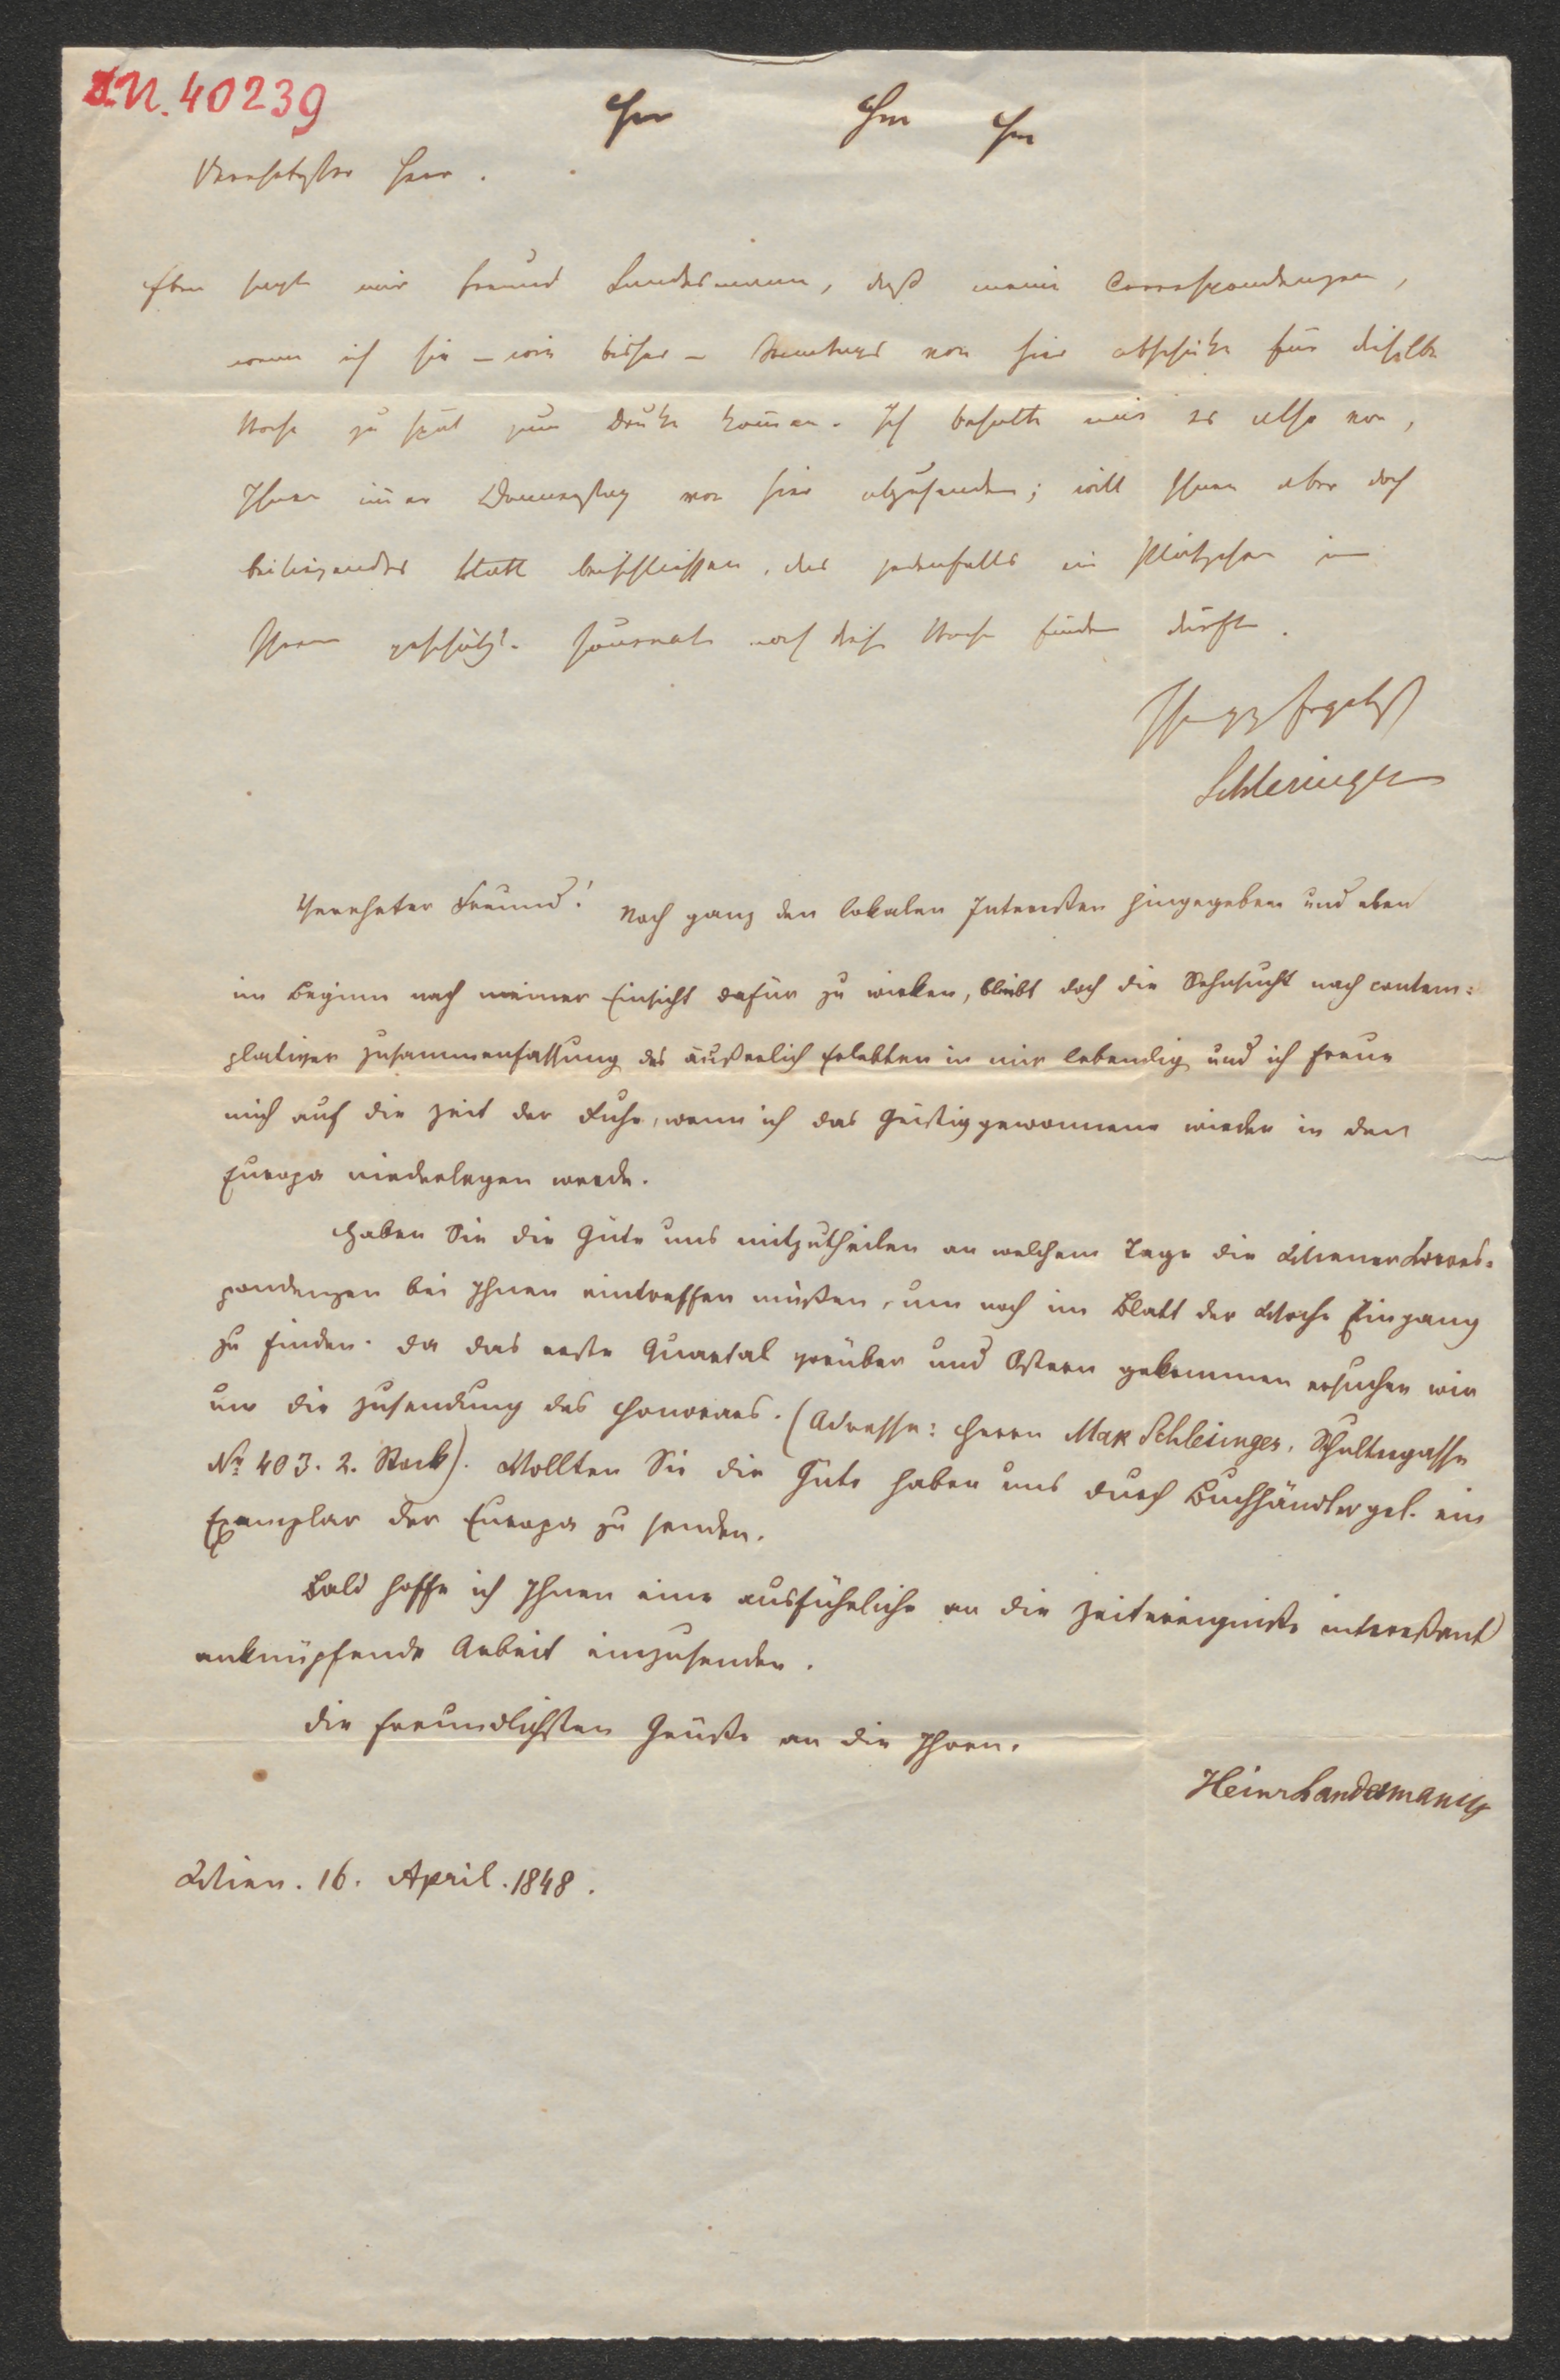 I.N. 40239
Verehrtester Herr.
Eben sagt mir Freund Landesmann, daß meine Correspondenzen,
wenn ich sie – wie bisher – Sonntags von hier abschicke für dieselbe
Woche zu spät zum Drucke kom̄en. Ich behalte mir es also vor,
Ihnen im̄er Donnerstag von hier abzusenden; will Ihnen aber doch
beiliegendes Blatt beischliessen, das jedenfalls ein Plätzchen in
Ihrem geschätzt. Journale noch diese Woche finden dürfte.
Ihr ergebenst
Schlesinger
Verehrter Freund! Noch ganz den lokalen Interessen hingegeben und eben
im Beginn nach meiner Einsicht dafür zu wirken, bleibt doch die Sehnsucht nach contem:
plativer Zusammenfassung des äußerlich Erlebten in mir lebendig und ich freue
mich auf die Zeit der Ruhe, wenn ich das Geistig gewonnene wieder in der
Europa niederlegen werde.
Haben Sie die Güte uns mitzutheilen an welchem Tage die Wiener Corres:
pondenzen bei Ihnen eintreffen müßen, um noch im Blatt der Woche Eingang
zu finden. Da das erste Quartal vorüber und Ostern gekommen ersuchen wir
um die Zusendung des Honorars. (Adresse: Herrn Max Schlesinger, Schultergasse
No 403. 2. Stock). Wollten Sie die Güte haben uns durch Buchhändlergel. ein
Exemplar der Europa zu senden.
Bald hoffe ich Ihnen eine ausführliche an die Zeitereigniße intereßant
anknüpfende Arbeit einzusenden.
Die freundlichsten Grüße an die Ihren.
Heinr Landesmann
Wien. 16. April. 1848.